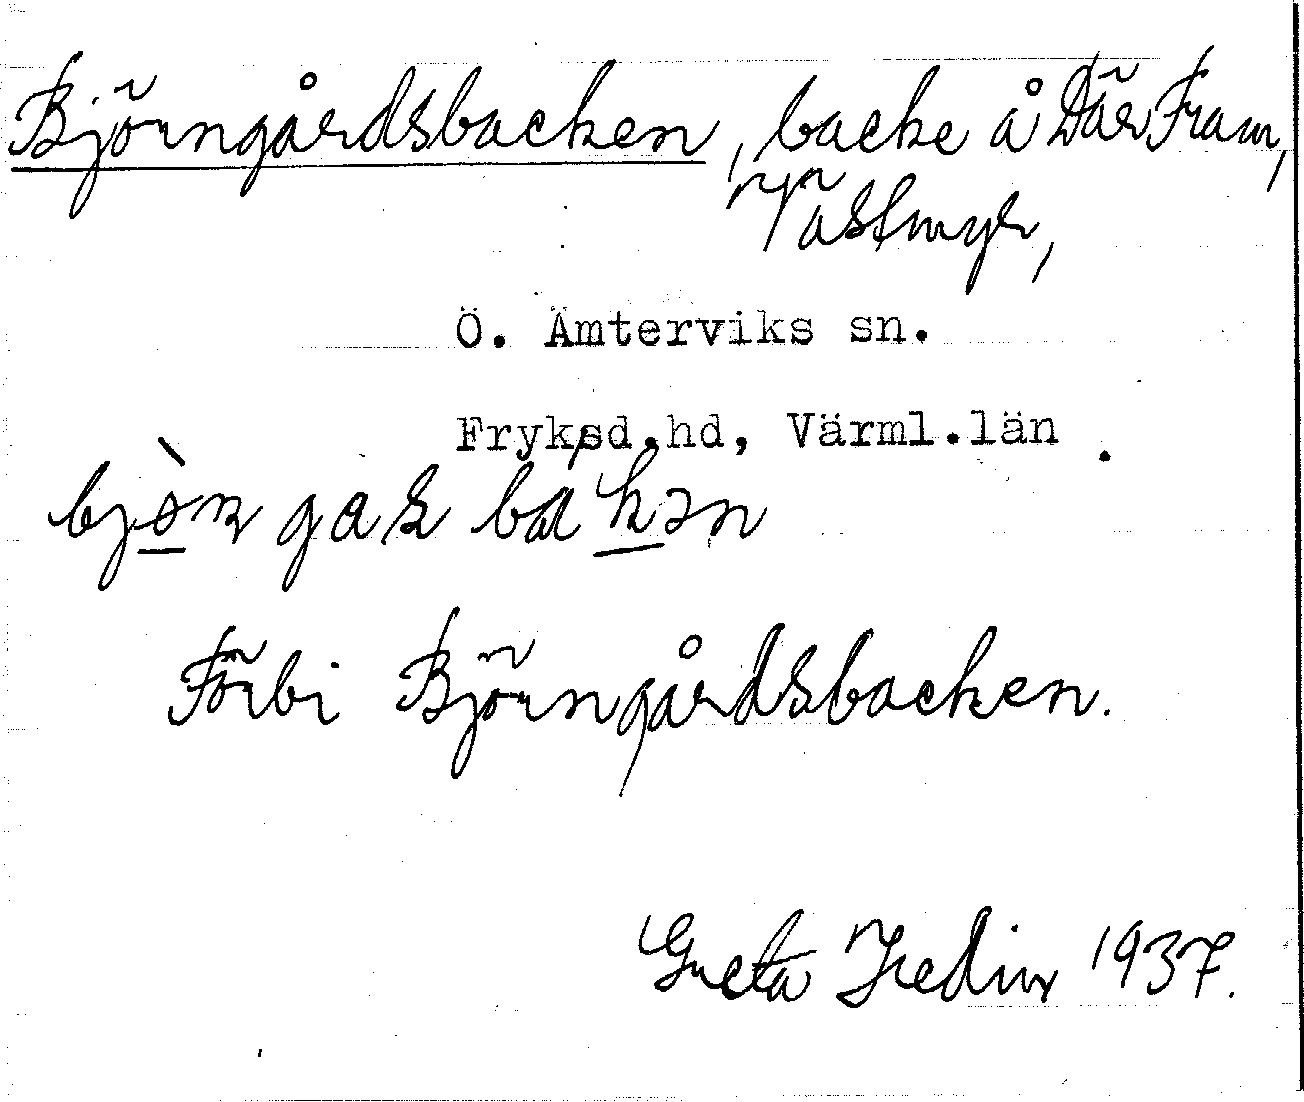 Björngårdsbacken, backe å Där Fram,
Västmyr,
Ö. Ämterviks sn.
Fryksd.hd, Värml.län.
Förbi Björngårdsbacken.
Greta Hedin 1937.